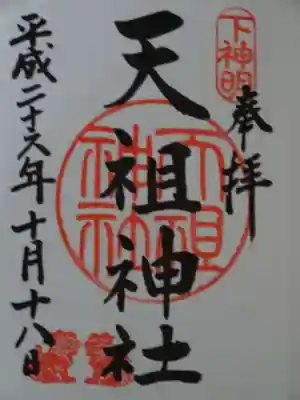 下神明
奉拝
天祖神社
天祖神社
平成二十六年十月十八日